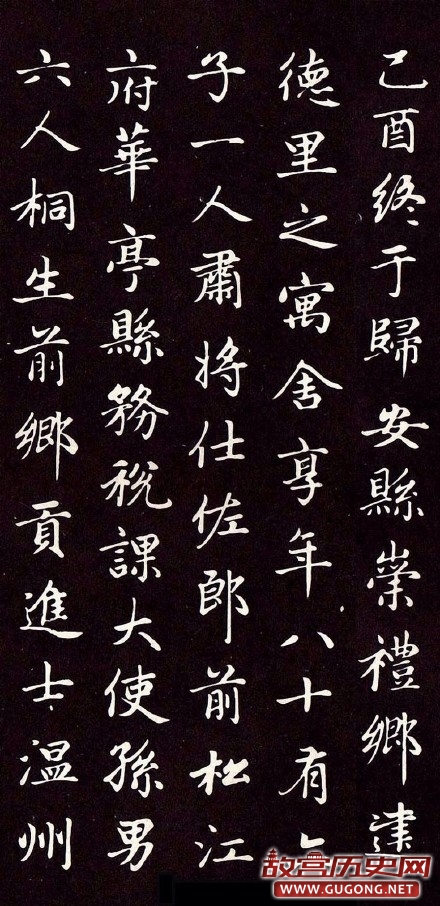 己酉終于歸安縣崇禮鄉建
德里之寓舍享年八十有
子一人肅將仕佐郎前松江
府華亭縣務稅課大使孫男
六人桐生前鄉貢進士温州
故宫历史网
WWW.GUGONG.NET